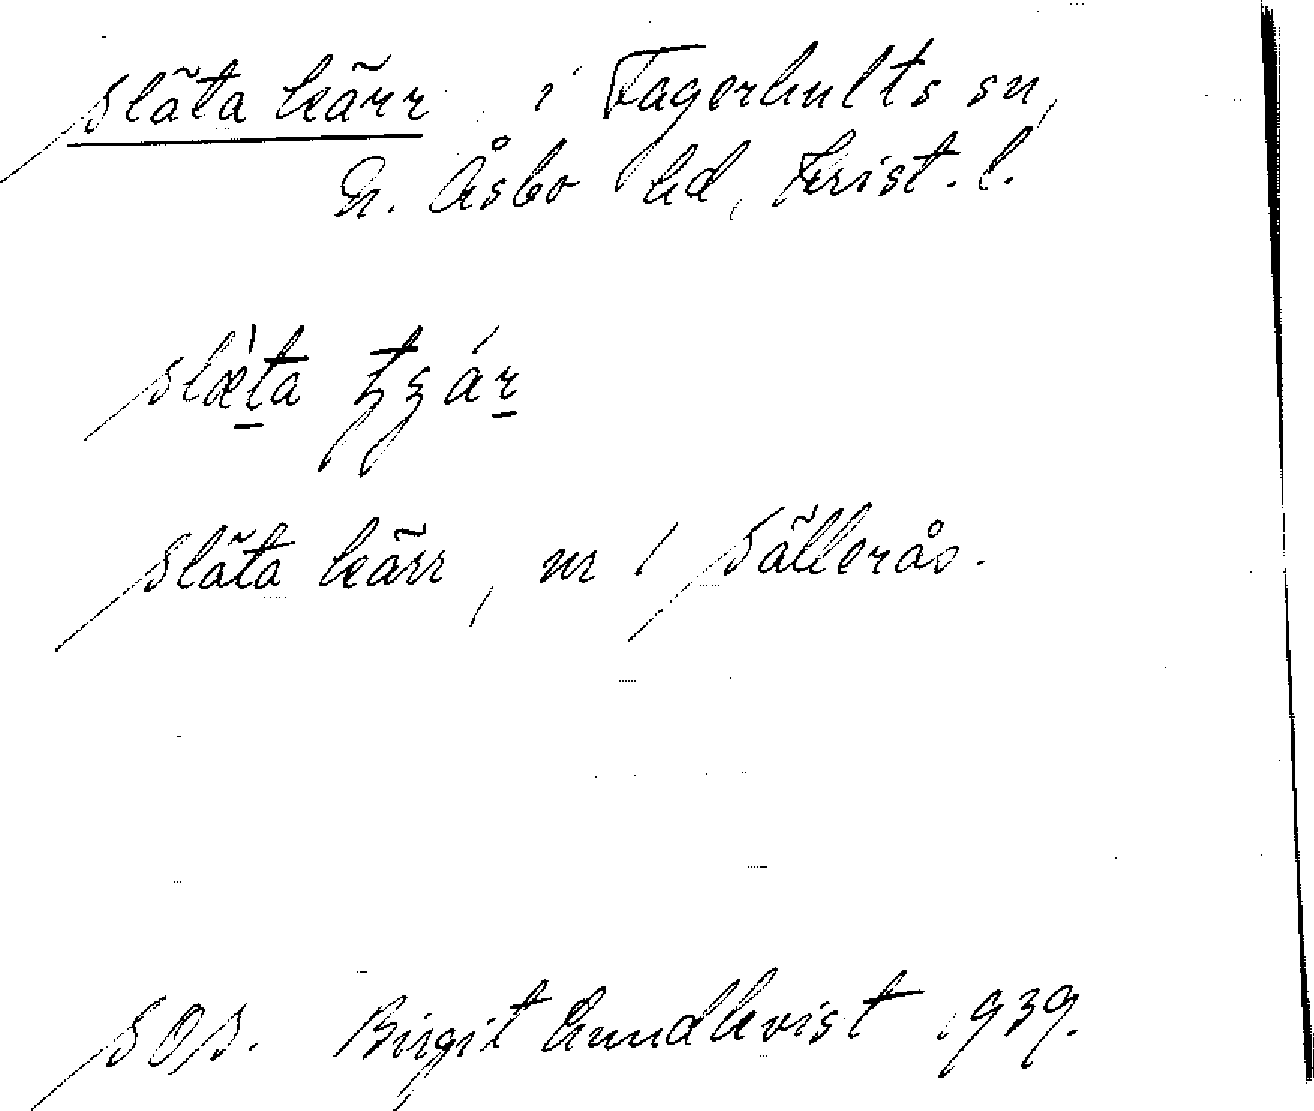 Släta kärr i Fagerhults sn,
N. Åsbo hd, Krist. l.
slæ̀ta
Släta kärr, nr 1 Sälleråş.
SOS. Birgit Lundkvist 1939.